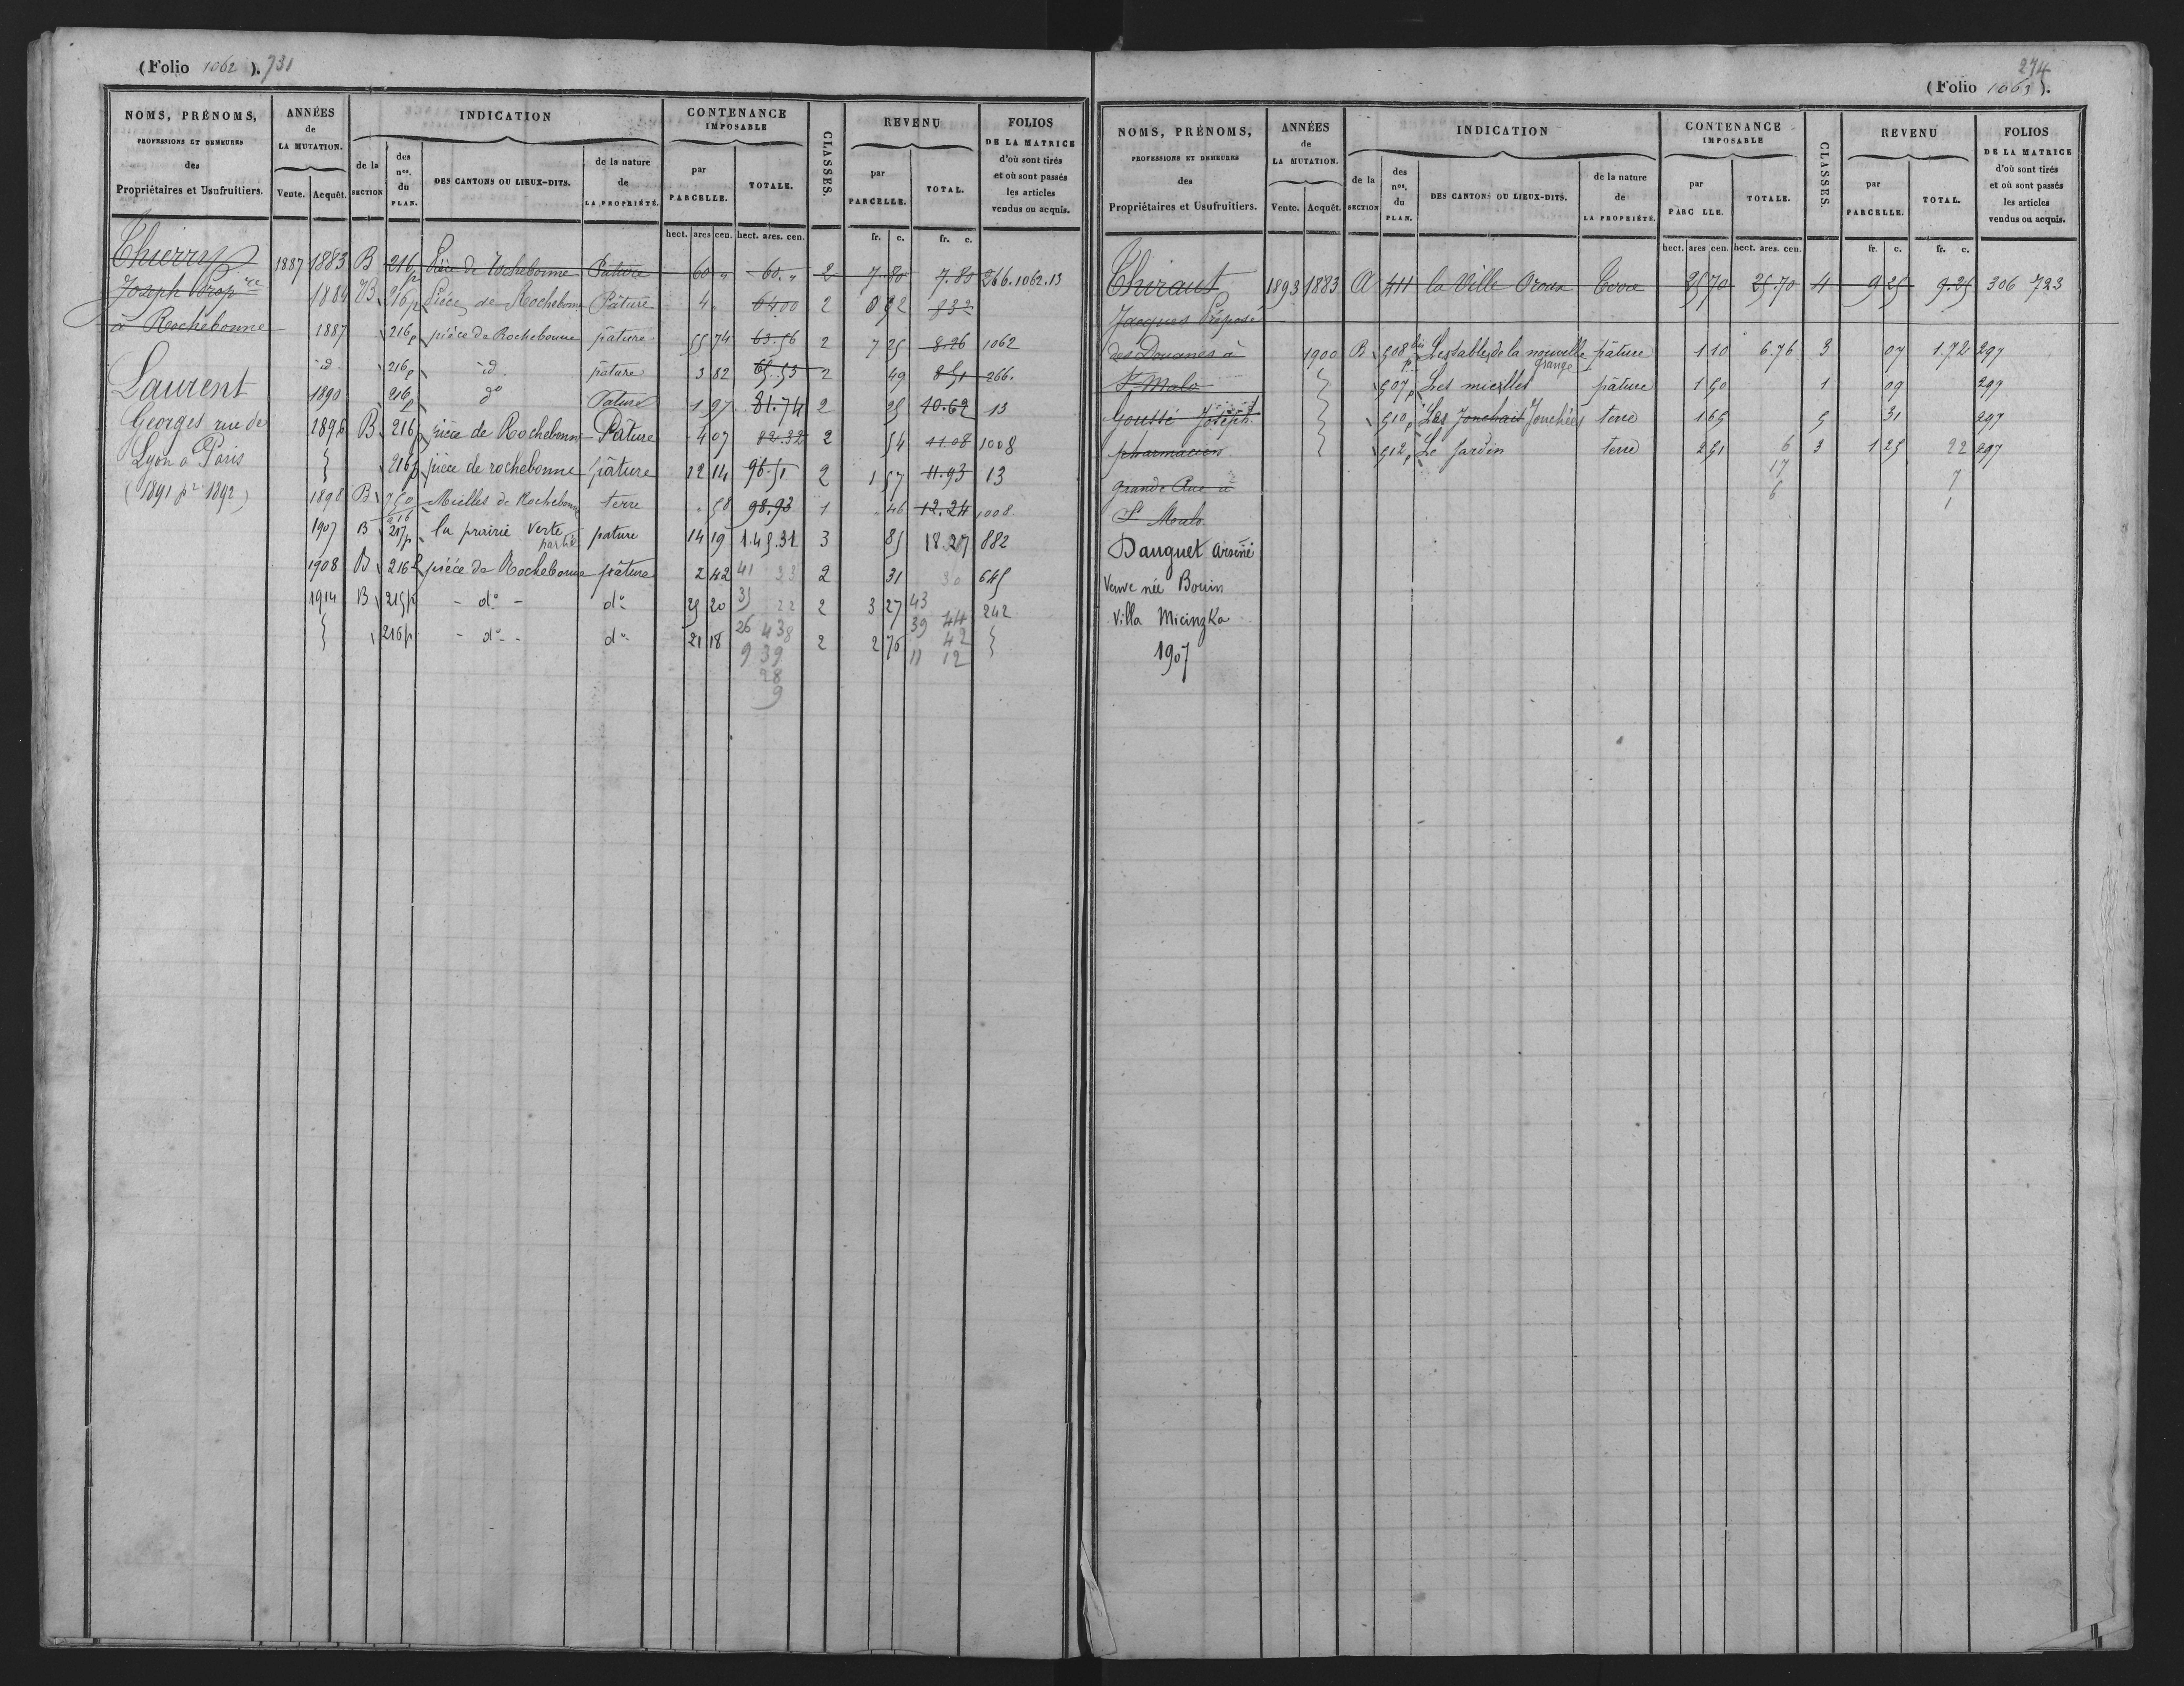 (Folio 1062). 731
NOMS, PRÉNOMS, PROFESSIONS ET DEMEURES des Propriétaires et Usufruitiers.
ANNÉES de LA MUTATION. Vente. Acquêt.
INDICATION de la SECTION des nos. du PLAN. DES CANTONS OU LIEUX-DITS. de la nature de LA PROPRIÉTÉ.
CONTENANCE IMPOSABLE par PARCELLE. TOTALE.
CLASSES.
REVENU par PARCELLE. TOTAL.
FOLIOS DE LA MATRICE d'où sont tirés et où sont passés les articles vendus ou acquis.
hect. ares cen. hect. ares. cen. fr. c. fr. c.
Thierry
Joseph Propre
à Rochebonne
Laurent
Georges rue de
Lyon à Paris
(1891 pr 1892)
1887 1883 B 216p Pièce de Rochebonne Pature 60 " 60. " 2 7 80 7.80 266.1062.13
1884 B 216p Pièce de Rochebonne Pâture 4 " 6400 2 0 52 832
1887 216p pièce de Rochebonne pâture 55 74 63.56 2 7 25 8.26 1062
id. 216p id. pature 3 82 65.53 2 49 8 51 266.
1890 216p do Pature 1 97 81.74 2 25 10.62 13
1896 B 216p pièce de Rochebonne Pâture 4 07 82.32 2 54 11.08 1008
216p pièce de rochebonne pâture 12 14 96.51 2 1 57 11.93 13
1898 B 250 Mielles de Rochebonne terre " 58 98.93 1 46 12.24 1008
1907 B 216 217p la prairie verte partie pature 14 19 1.45.31 3 85 18.27 882
1908 B 216p pièce de Rochebonne pâture 2 42 41 23 2 31 30 645
1914 B 215p - do - do 25 20 35 22 2 3 27 43 44 242
216p - do - do 21 18 26 438 2 2 76 39 42
9 39 11 12
28
9
274
(Folio 1063).
NOMS, PRÉNOMS, PROFESSIONS ET DEMEURES des Propriétaires et Usufruitiers.
ANNÉES de LA MUTATION. Vente. Acquêt.
INDICATION de la SECTION des nos. du PLAN. DES CANTONS OU LIEUX-DITS. de la nature de LA PROPRIÉTÉ.
CONTENANCE IMPOSABLE par PARC LLE. TOTALE.
CLASSES.
REVENU par PARCELLE. TOTAL.
FOLIOS DE LA MATRICE d'où sont tirés et où sont passés les articles vendus ou acquis.
hect. ares cen. hect. ares. cen. fr. c. fr. c.
Thiraut
Jacques Préposé
des Douanes à
St Malo
Goussé Joseph
pharmacien
grande Rue à
St Malo
Dauguet Arsène
Veuve née Bouin
Villa Micinzka
1907
1893 1883 A 411 la Ville Oroux Terre 25 70 25.70 4 9 25 9.25 306 723
1900 B 508 bis p Les tables de la nouvelle grange pâture 1 10 6.76 3 07 1.72 297
507p Les mielles pâture 1 50 1 09 297
510p Les Jonchais Jonchées terre 1 65 5 31 297
512p Le Jardin terre 2 51 6 3 1 25 22 297
17 7
6 1